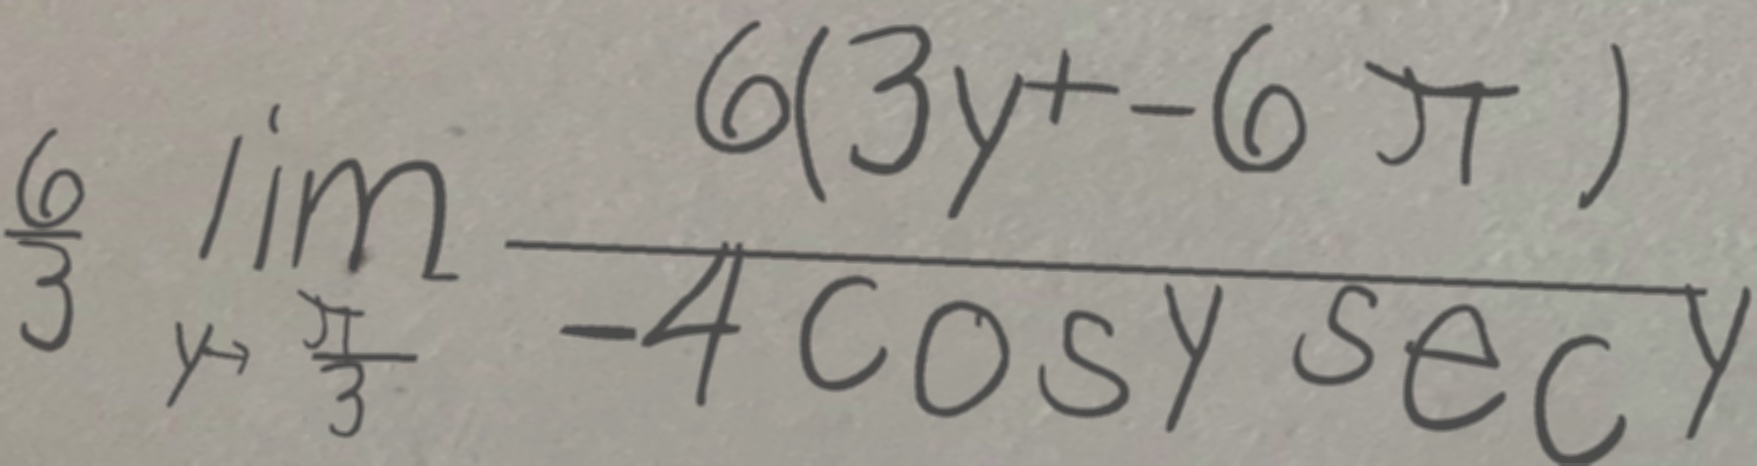 \frac{6}{3} \lim_{y \to \frac{\pi}{3}} \frac{6(3y+-6\pi)}{-4\cos y \sec y}